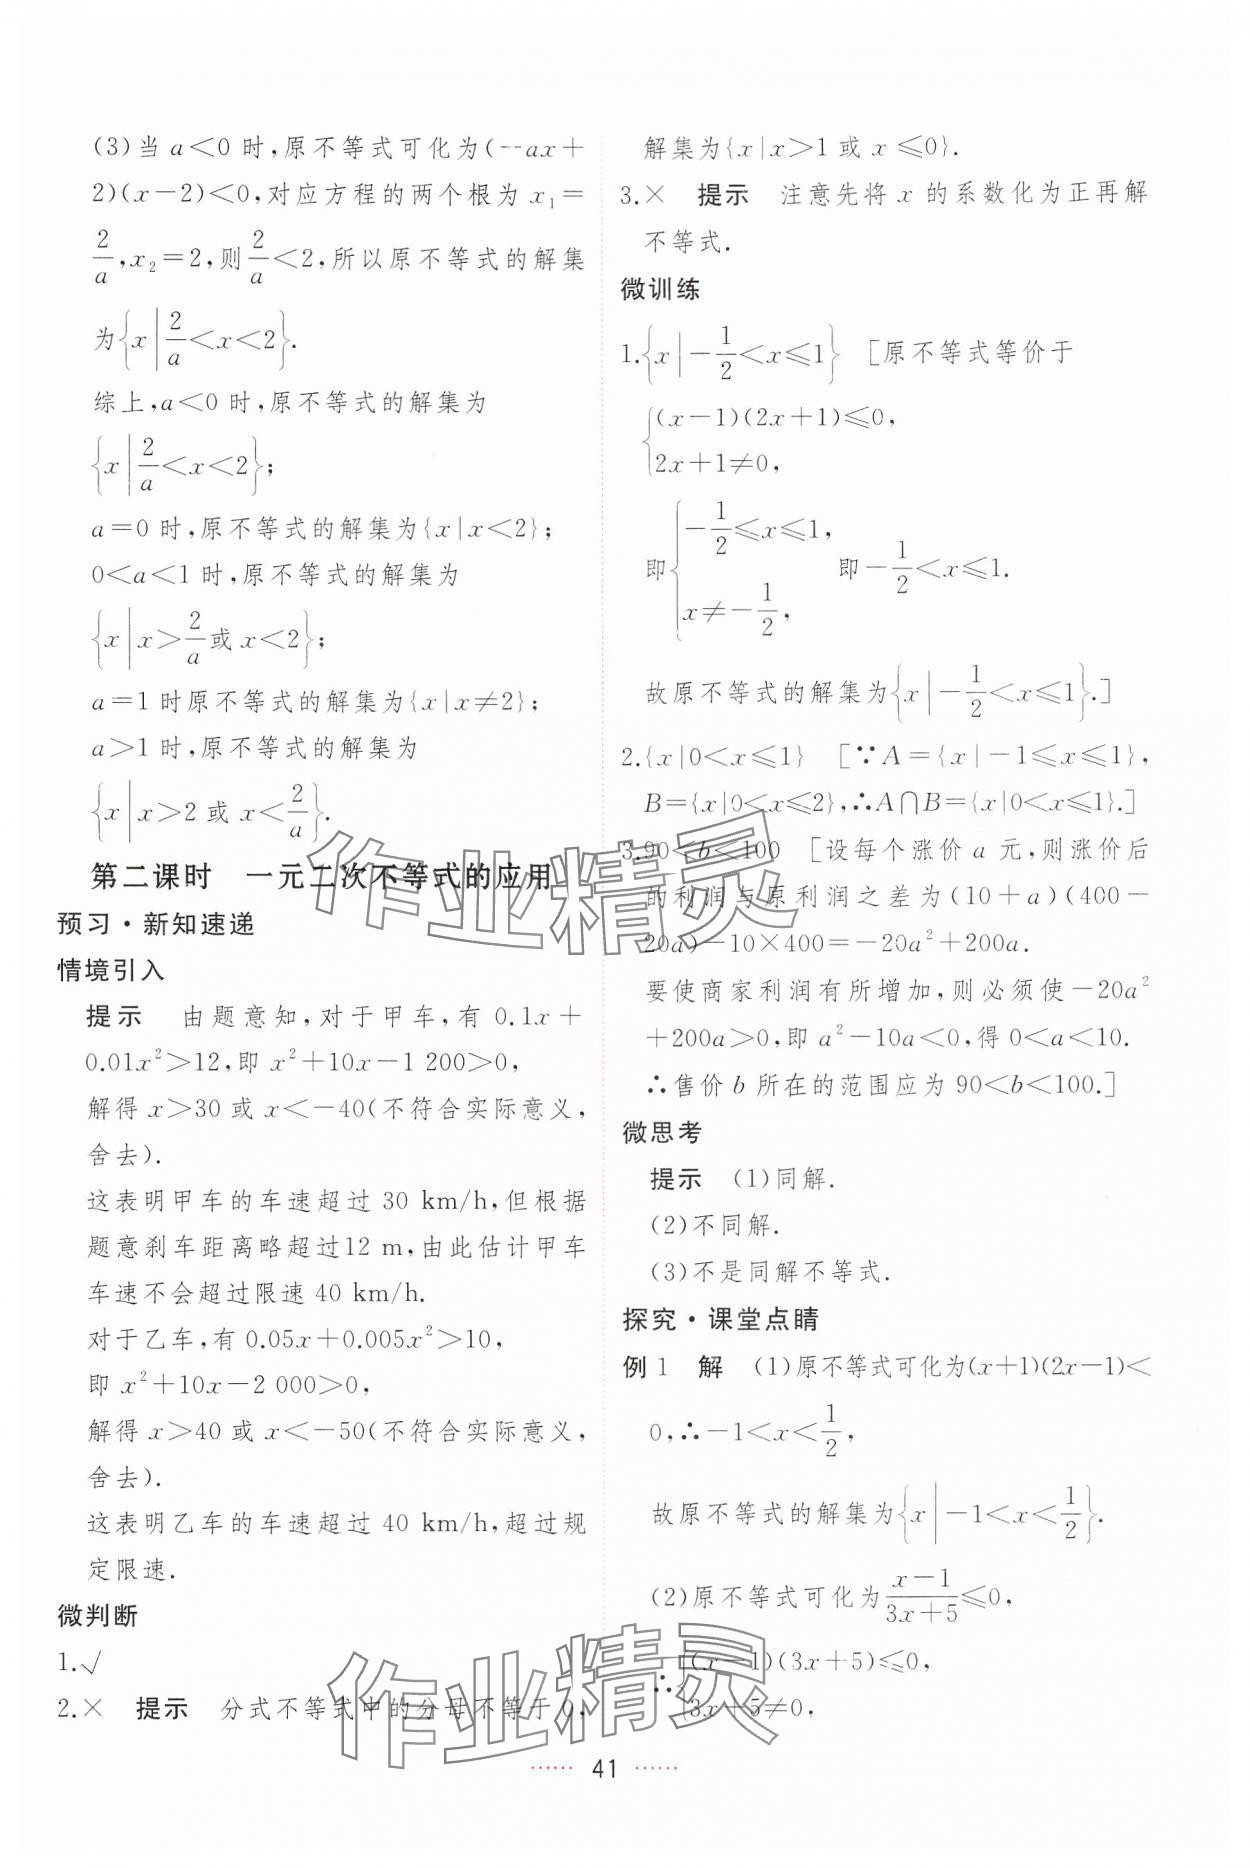 (3)当 a<0 时,原不等式可化为(-ax+
2)(x-2)<0,对应方程的两个根为 x₁=
2/a,x₂=2,则2/a<2,所以原不等式的解集
为{x|2/a<x<2}.
综上,a<0 时,原不等式的解集为
{x|2/a<x<2};
a=0 时,原不等式的解集为{x|x<2};
0<a<1 时,原不等式的解集为
{x|x>2/a或 x<2};
a=1 时原不等式的解集为{x|x≠2};
a>1 时,原不等式的解集为
{x|x>2 或 x<2/a}.
第二课时 一元二次不等式的应用
预习·新知速递
情境引入
提示 由题意知,对于甲车,有 0.1x+
0.01x²>12,即 x²+10x-1 200>0,
解得 x>30 或 x<-40(不符合实际意义,
舍去).
这表明甲车的车速超过 30 km/h,但根据
题意刹车距离略超过12 m,由此估计甲车
车速不会超过限速 40 km/h.
对于乙车,有 0.05x+0.005x²>10,
即 x²+10x-2 000>0,
解得 x>40 或 x<-50(不符合实际意义,
舍去).
这表明乙车的车速超过 40 km/h,超过规
定限速.
微判断
1.√
2.× 提示 分式不等式中的分母不等于 0,
解集为{x|x>1 或 x≤0}.
3.× 提示 注意先将 x 的系数化为正再解
不等式.
微训练
1.{x|-1/2<x≤1} [原不等式等价于
{(x-1)(2x+1)≤0,
2x+1≠0,
即{-1/2≤x≤1, x≠-1/2, 即-1/2<x≤1.
故原不等式的解集为{x|-1/2<x≤1}.]
2.{x|0<x≤1} [∵A={x|-1≤x≤1},
B={x|0<x≤2},∴A∩B={x|0<x≤1}.]
3.90<b<100 [设每个涨价 a 元,则涨价后
的利润与原利润之差为(10+a)(400-
20a)-10×400=-20a²+200a.
要使商家利润有所增加,则必须使-20a²
+200a>0,即 a²-10a<0,得 0<a<10.
∴售价 b 所在的范围应为 90<b<100.]
微思考
提示 (1)同解.
(2)不同解.
(3)不是同解不等式.
探究·课堂点睛
例 1 解 (1)原不等式可化为(x+1)(2x-1)<
0,∴-1<x<1/2,
故原不等式的解集为{x|-1<x<1/2}.
(2)原不等式可化为(x-1)/(3x+5)≤0,
∴{(x-1)(3x+5)≤0,
3x+5≠0,
41
作业精灵
作业精灵